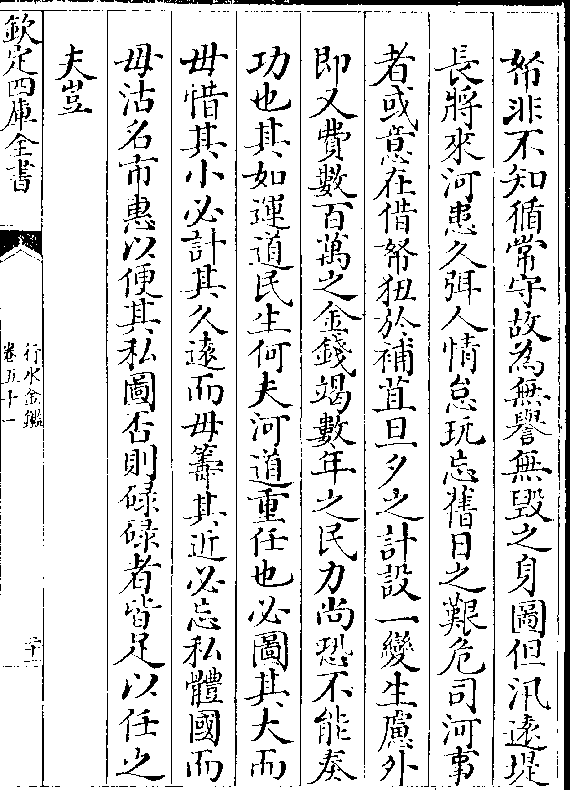 帑非不知循常守故為無譽無毀之身圖但汛遠堤
長將來河患久弭人情怠玩忘舊日之艱危司河事
者或意在借帑狃於補苴旦夕之計設一變生慮外
即又費數百萬之金錢竭數年之民力尚恐不能奏
功也其如運道民生何夫河道重任也必圖其大而
毋惜其小必計其久遠而毋籌其近必忘私體國而
毋沽名市惠以便其私圖否則碌碌者皆足以任之
夫豈
欽定四庫全書
行水金鑑
卷五十一